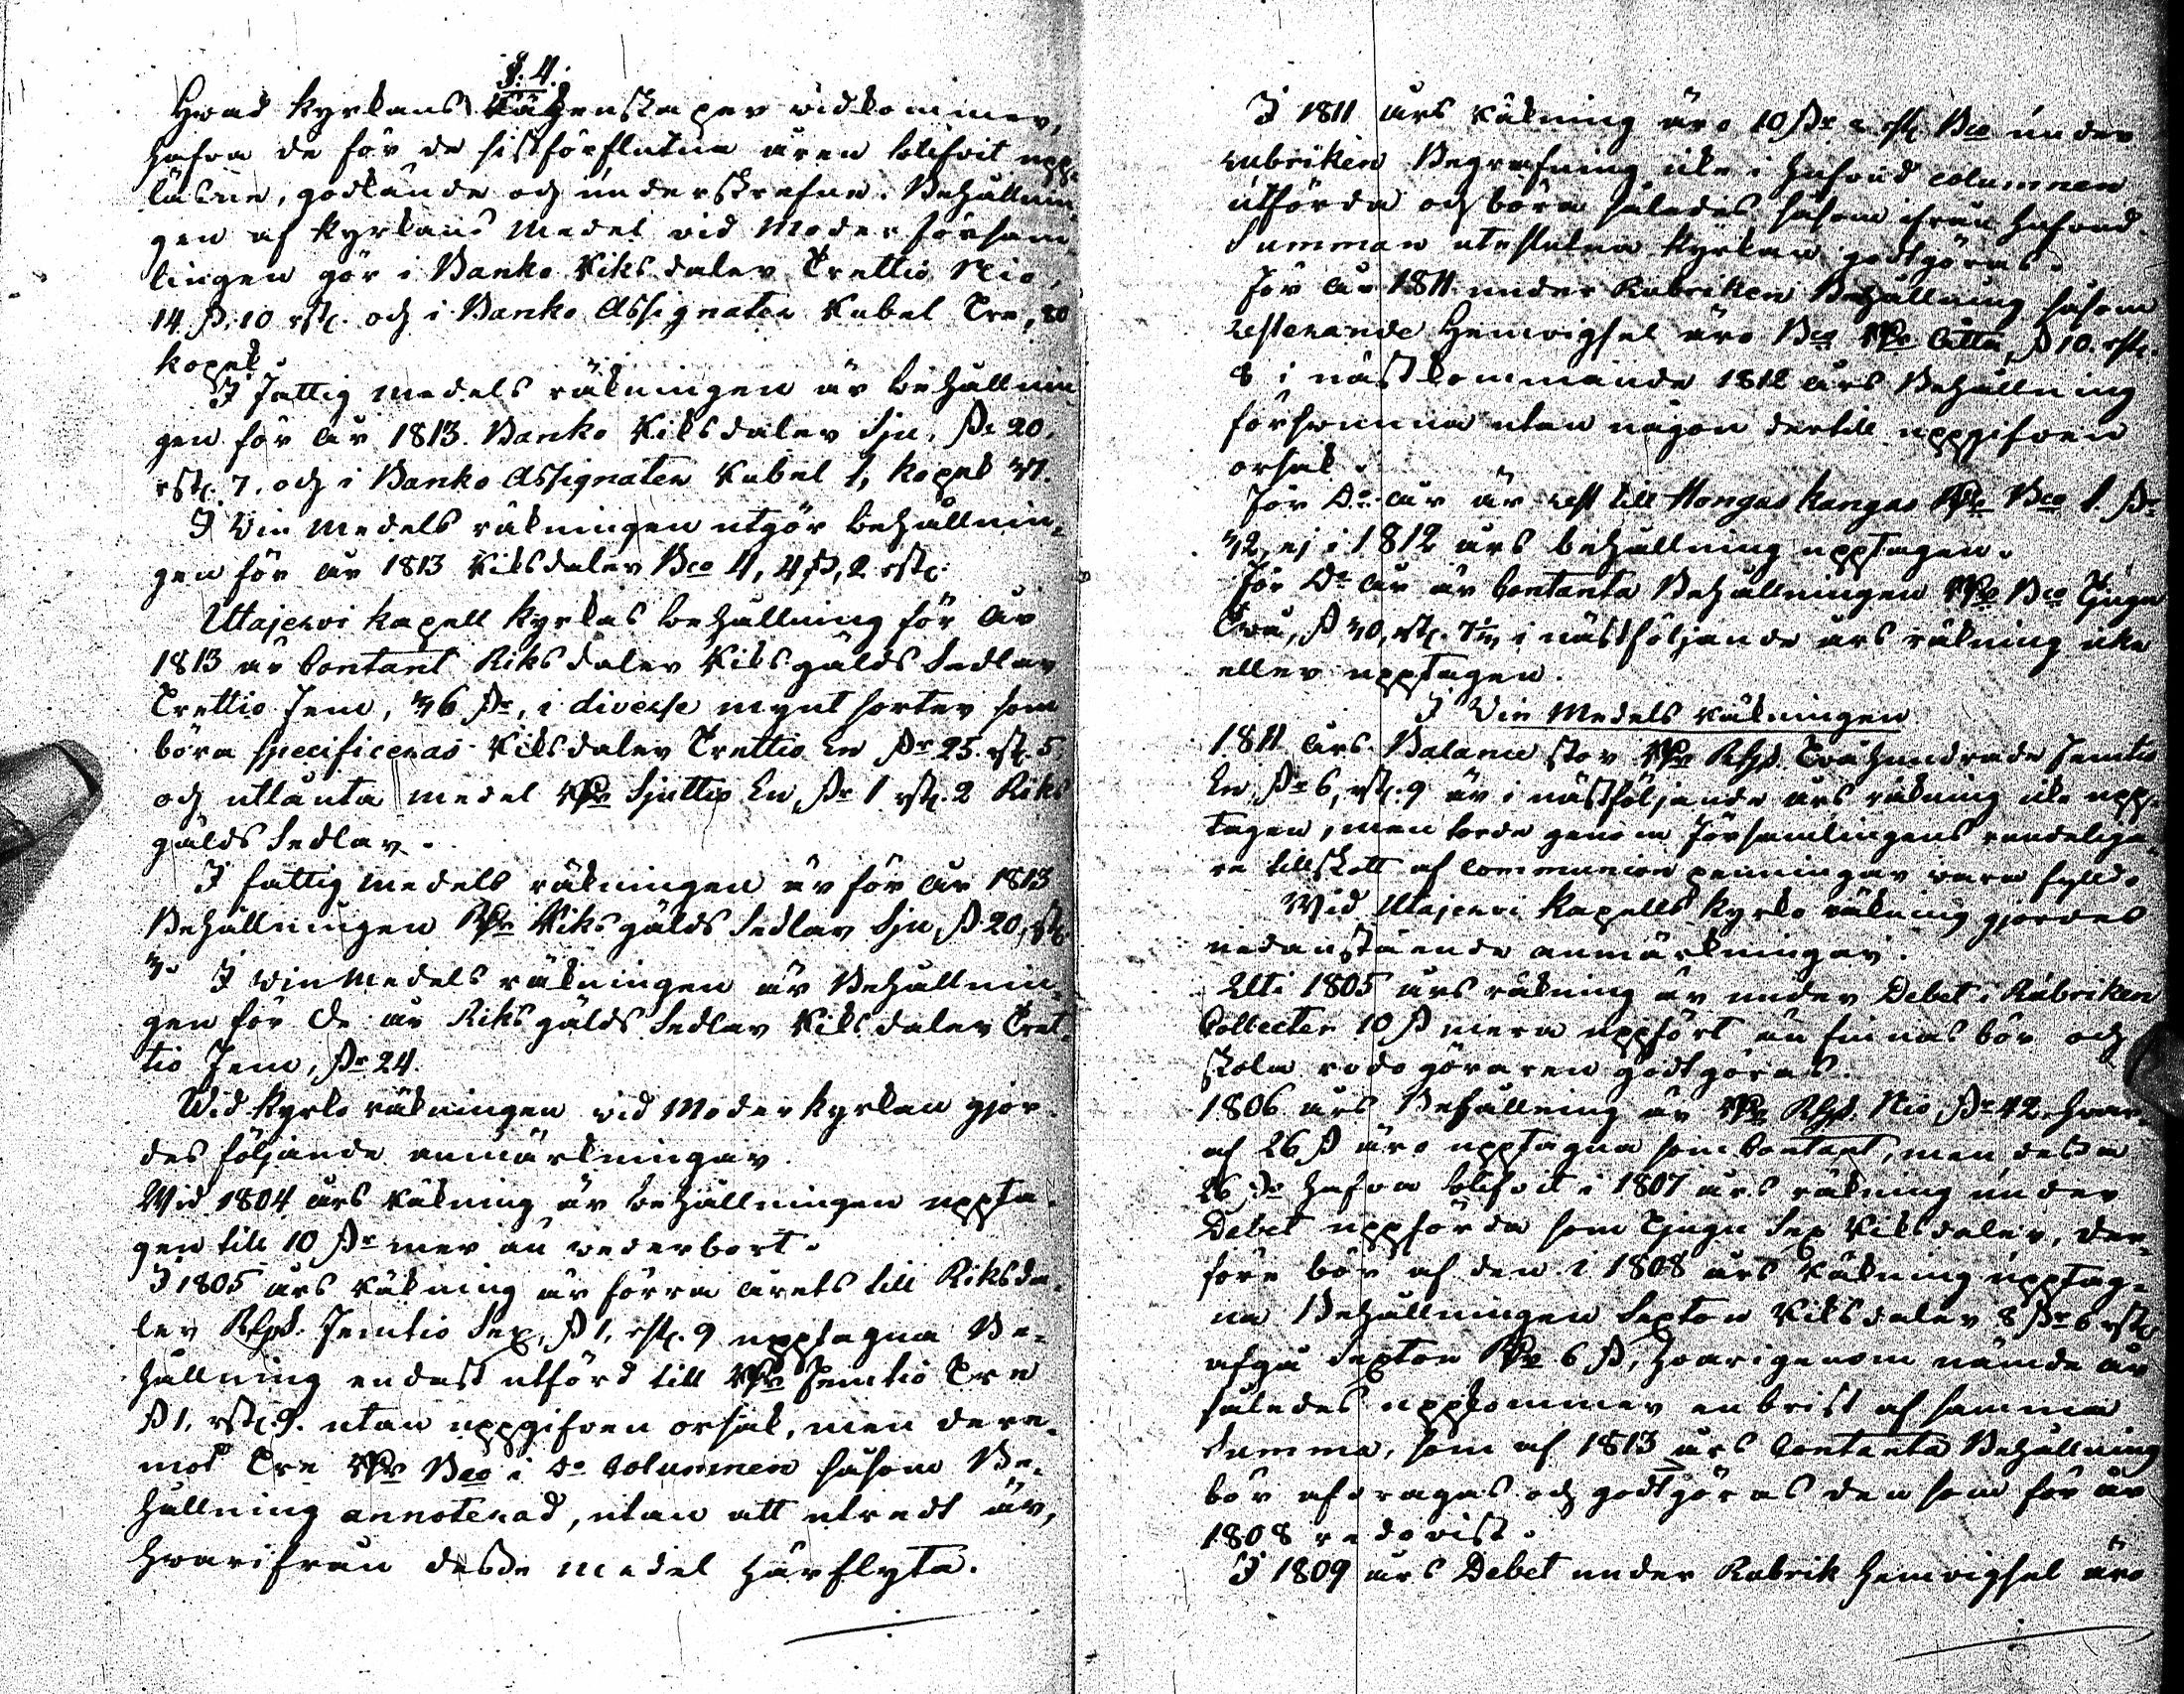 §. 4.
Hwad Kyrkans Räkenskaper widkommer,
hafwa de för de sistförflutna åren blifwit upp-
läsne, godkände och underskrefne. Behållnin-
gen af Kyrkans Medel wid Moder församm-
lingen gör i Banko Riksdaler Trettio Nio,
14 ß. 10 rst. och i Banko Assignater Rubel Tre, 80
kopek.
I Fattig Medels räkningen är behållnin-
gen för år 1813. Banko Riksdaler Sju, ß. 20.
rst. 7. och i Banko Assignater Rubel 1, kopek 71.
I Win Medels räkningen utgör behållnin-
gen för år 1813 Riksdaler Bco 4, 4 ß, 2 rst.
Utajerwi Kapell Kyrkas behållning för år
1813 är Contant Riksdaler Riksgälds Sedlar
Trettio Fem, 46 ßr, i diverse myntsorter som
böra specificeras Riksdaler Trettio En ßr 25. rst. 5,
och utlånta medel Rdr Sjuttio En, ßr 1 rst. 2 Riks
gälds Sedlar.
I fattig Medels räkningen är för år 1813
Behållningen Rdr Riksgälds Sedlar Sju, ß 20, rst.
I Win Medels räkningen är Behållnin-
gen för do år Riksgälds Sedlar Riksdaler Tret-
tio Fem, ßr 24.
Wid Kyrko räkningen wid Moderkyrkan gjor-
des följande anmärkningar
Wid 1804 års räkning är behållningen uppta-
gen till 10 ßr mer än wederbort.
I 1805 års räkning är förra årets till Riksda-
ler Rgs. Femtio Sex, ß 1, rst. 9 upptagna Be-
hållning endast utförd till Rdr Femtio Tre
ß 1. rst. 9. utan uppgifwen orsak, men dere-
mot Tre Rdr Bco i do Columnen såsom Be-
hållning annoterad, utan att utredt är,
hwarifrån dessa medel härflyta.
I 1811 års räkning äro 10 ßr rst. Bco under
rubriken Begrafning icke i hufwud columnen
utförda och böra således såsom ifrån hufwud-
Summan uteslutna kyrkan godtgöras.
För år 1811 under Rubriken Behållning såsom
resterande Hemwigsel äro Bco Rdr Åtta, ß 10. rst.
8 i nästkommande 1812 års Behållning
förswunna utan någon dertill uppgifwen
orsak.
För Do år är rest till Hongas kangas Rdr Bco 1. ßr
42, ej i 1812 års behållning upptagen.
För Do år är Contanta Behållningen Rdr Bco Tjugu
Två, ß 40, rst. i nästföljande års räkning icke
eller upptagen.
I Win Medels räkningen
1811 års Balance stor Rdr Rgs. Twåhundrade Femtio
En, ßr 6, rst. 9 är i nästföljande års räkning icke upp-
tagen, men torde genom Församlingens rundeliga-
re tillskott af Communion penningar wara fylld.
Wid Utajerwi Kapells Kyrko räkning gjordes
nedanstående anmärkningar.
Uti 1805 års räkning är under Debet i Rubriken
Collecter 10 ß mera uppfört än finnas bör och
skola redogöraren godtgöras.
1806 års Behållning är Rdr Rgs. Nio, ßr 42 hwar-
af 26 ß äro upptagna som Contant, men dessa
26 ßr hafwa blifwit i 1807 års räkning under
Debet uppförda som Tjugu Sex Riksdaler, der-
före bör af den i 1808 års räkning upptag-
na Behållningen Sexton Riksdaler 8 ßr 6 rst.
afgå Sexton Rdr 6 ß, hwarigenom nämde år
således uppkommer en brist af samma
Summa, som af 1813 års Contanta Behållning
bör afdragas och godtgöras den som för år
1808 redowist.
I 1809 års Debet under Rubrik Hemwigsel äro